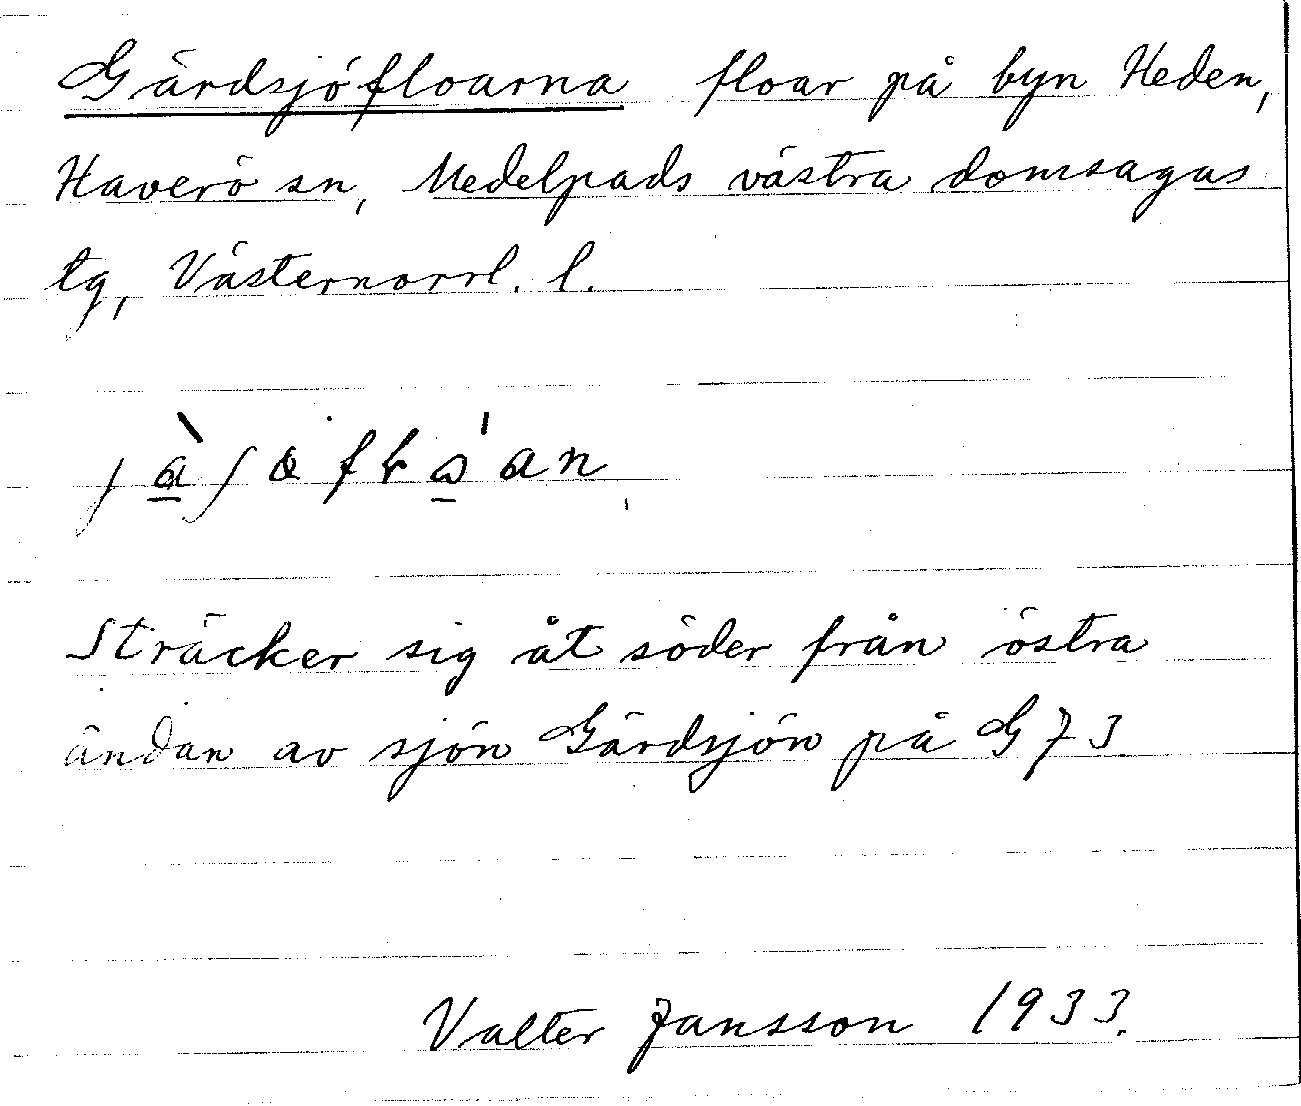 Gärdsjöfloarna floar på byn Heden,
Haverö sn, Medelpads västra domsagas
tg, Västernorrl. l.
Sträcker sig åt söder från östra
ändan av sjön Gärdsjön på G 73
Valter Jansson 1933.